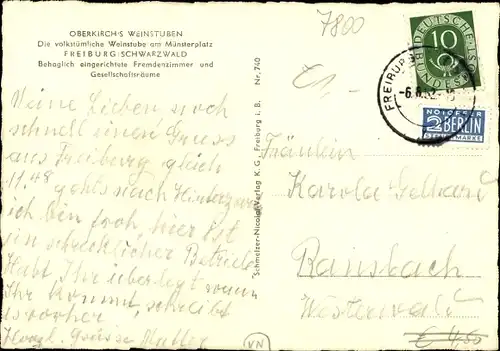 7800
OBERKIRCH'S WEINSTUBEN
Die volkstümliche Weinstube am Münsterplatz
FREIBURG/SCHWARZWALD
Behaglich eingerichtete Fremdenzimmer und
Gesellschaftsräume
Nr. 740
Schmelzer-Nicolai Verlag K. G., Freiburg i. B.
DEUTSCHE BUNDESPOST
10
FREIBURG
NOTOPFER
2 BERLIN
STEUERMARKE
Meine Lieben noch
schnell einen Gruss
aus Freiburg gleich
11.48
gehts nach Hinterzarten
ich bin froh, hier ist
ein schrecklicher Betrieb
Habt Ihr überlegt wann
Ihr kommt, schreibt
es vorher
Herzl. Grüsse Mutter
Fräulein
Karola Gebhard
Ransbach
Westerwald
VN
€ 4,50